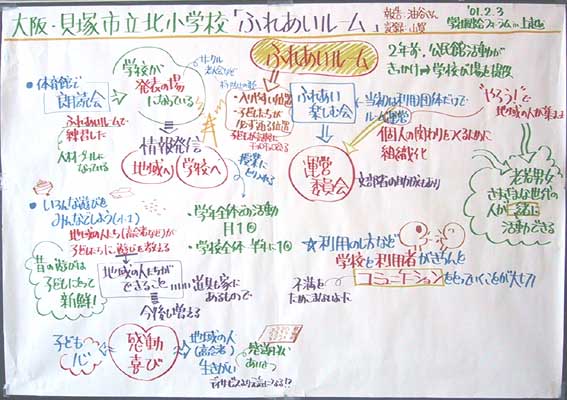 大阪・貝塚市立北小学校「ふれあいルーム」
報告:油谷さん
'01.2.3
ふれあいルーム
2年前、公民館活動が
きっかけ→学校が場を提供
学校が
発表の場
になっている
・体育館で
朗読会
ふれあいルームで
練習した
人材・タルに
なっている
情報発信
地域へ
学校へ
・入りやすい位置
・子どもたちが
必ず通る位置
ふれあい
楽しむ会
当初は利用団体だけで
ルーム運営
個人の関わりをつくるために
組織化
"やろう!"で
地域の人が集まる
運営
委員会
老若男女
さまざまな世代の
人が一緒に
活動できる
授業に
・いろんな遊びを
みんなでしよう(小1)
地域の人たち(高齢者など)が
子どもたちに、遊びを教える
・学年全体の活動
月1回
・学校全体-半年に1回
昔の遊びは
子どもにとって
新鮮!
地域の人たちが
できること
道具も家に
あるもので
今後も増える
☆利用の方など
学校と利用者がきちんと
コミュニケーションをとっていくことが大切
不満を
ためこまないように
子ども
心
感動
喜び
地域の人
(高齢者)
生きがい
デイサービスより元気になる!?